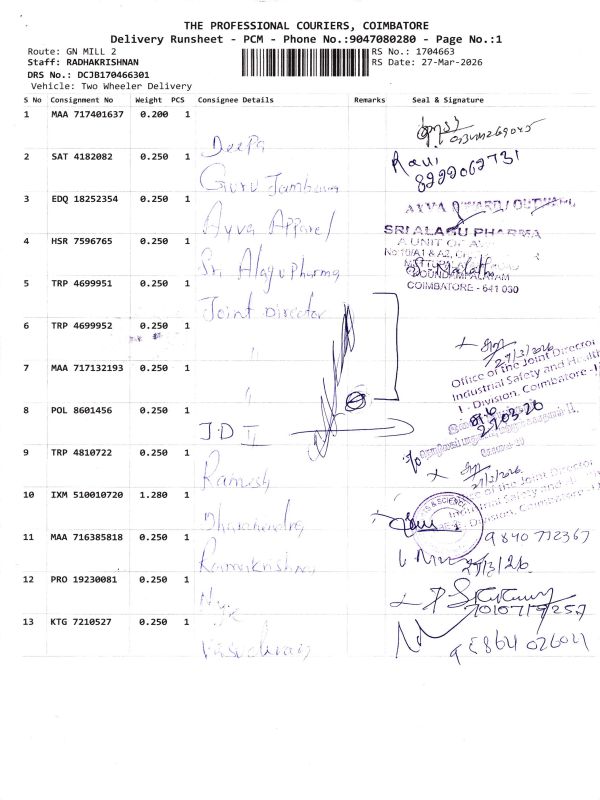 THE PROFESSIONAL COURIERS, COIMBATORE
Delivery Runsheet - PCM - Phone No.:9047080280 - Page No.:1
Route: GN MILL 2
RS No.: 1704663
Staff: RADHAKRISHNAN
RS Date: 27-Mar-2026
DRS No.: DCJB170466301
Vehicle: Two Wheeler Delivery
S No Consignment No Weight PCS Consignee Details Remarks Seal & Signature
1 MAA 717401637 0.200 1
Deepa
2 SAT 4182082 0.250 1
Ravi
8222062731
Guru
3 EDQ 18252354 0.250 1
Ayva Apparel
AYVA
4 HSR 7596765 0.250 1
SRI ALAGU PHARMA
A UNIT OF
Sri Alagu Pharma
GOUNDAMPALAYAM
COIMBATORE - 641 030
5 TRP 4699951 0.250 1
Joint Director
6 TRP 4699952 0.250 1
"
27/3/2026
Office of the Joint Director
Industrial Safety and Health
I - Division, Coimbatore -
7 MAA 717132193 0.250 1
"
8 POL 8601456 0.250 1
27-03-26
J.D II
9 TRP 4810722 0.250 1
27/3/2026
Ramesh
of the Joint Director
Safety and
Division, Coimbatore
10 IXM 510010720 1.280 1
9840772367
11 MAA 716385818 0.250 1
27/3/26
Ramakrishna
12 PRO 19230081 0.250 1
7010719257
13 KTG 7210527 0.250 1